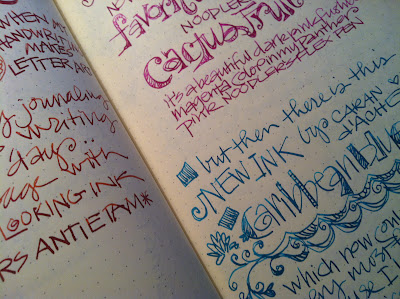 WHEN M
HANDWRITIN
MAKES
LETTER AR
journaling
writing
day
with
LOOKING INK
RS ANTIETAM*
favorite
NOODLERS
Cactus Fruit
it's a beautiful dark pink fuchsia
magenta color in my panther
pink NOODLERS FLEX PEN
but then there is this
NEW INK by CARAN
d'ACHE
Caribbean Blu
which now
my
use I